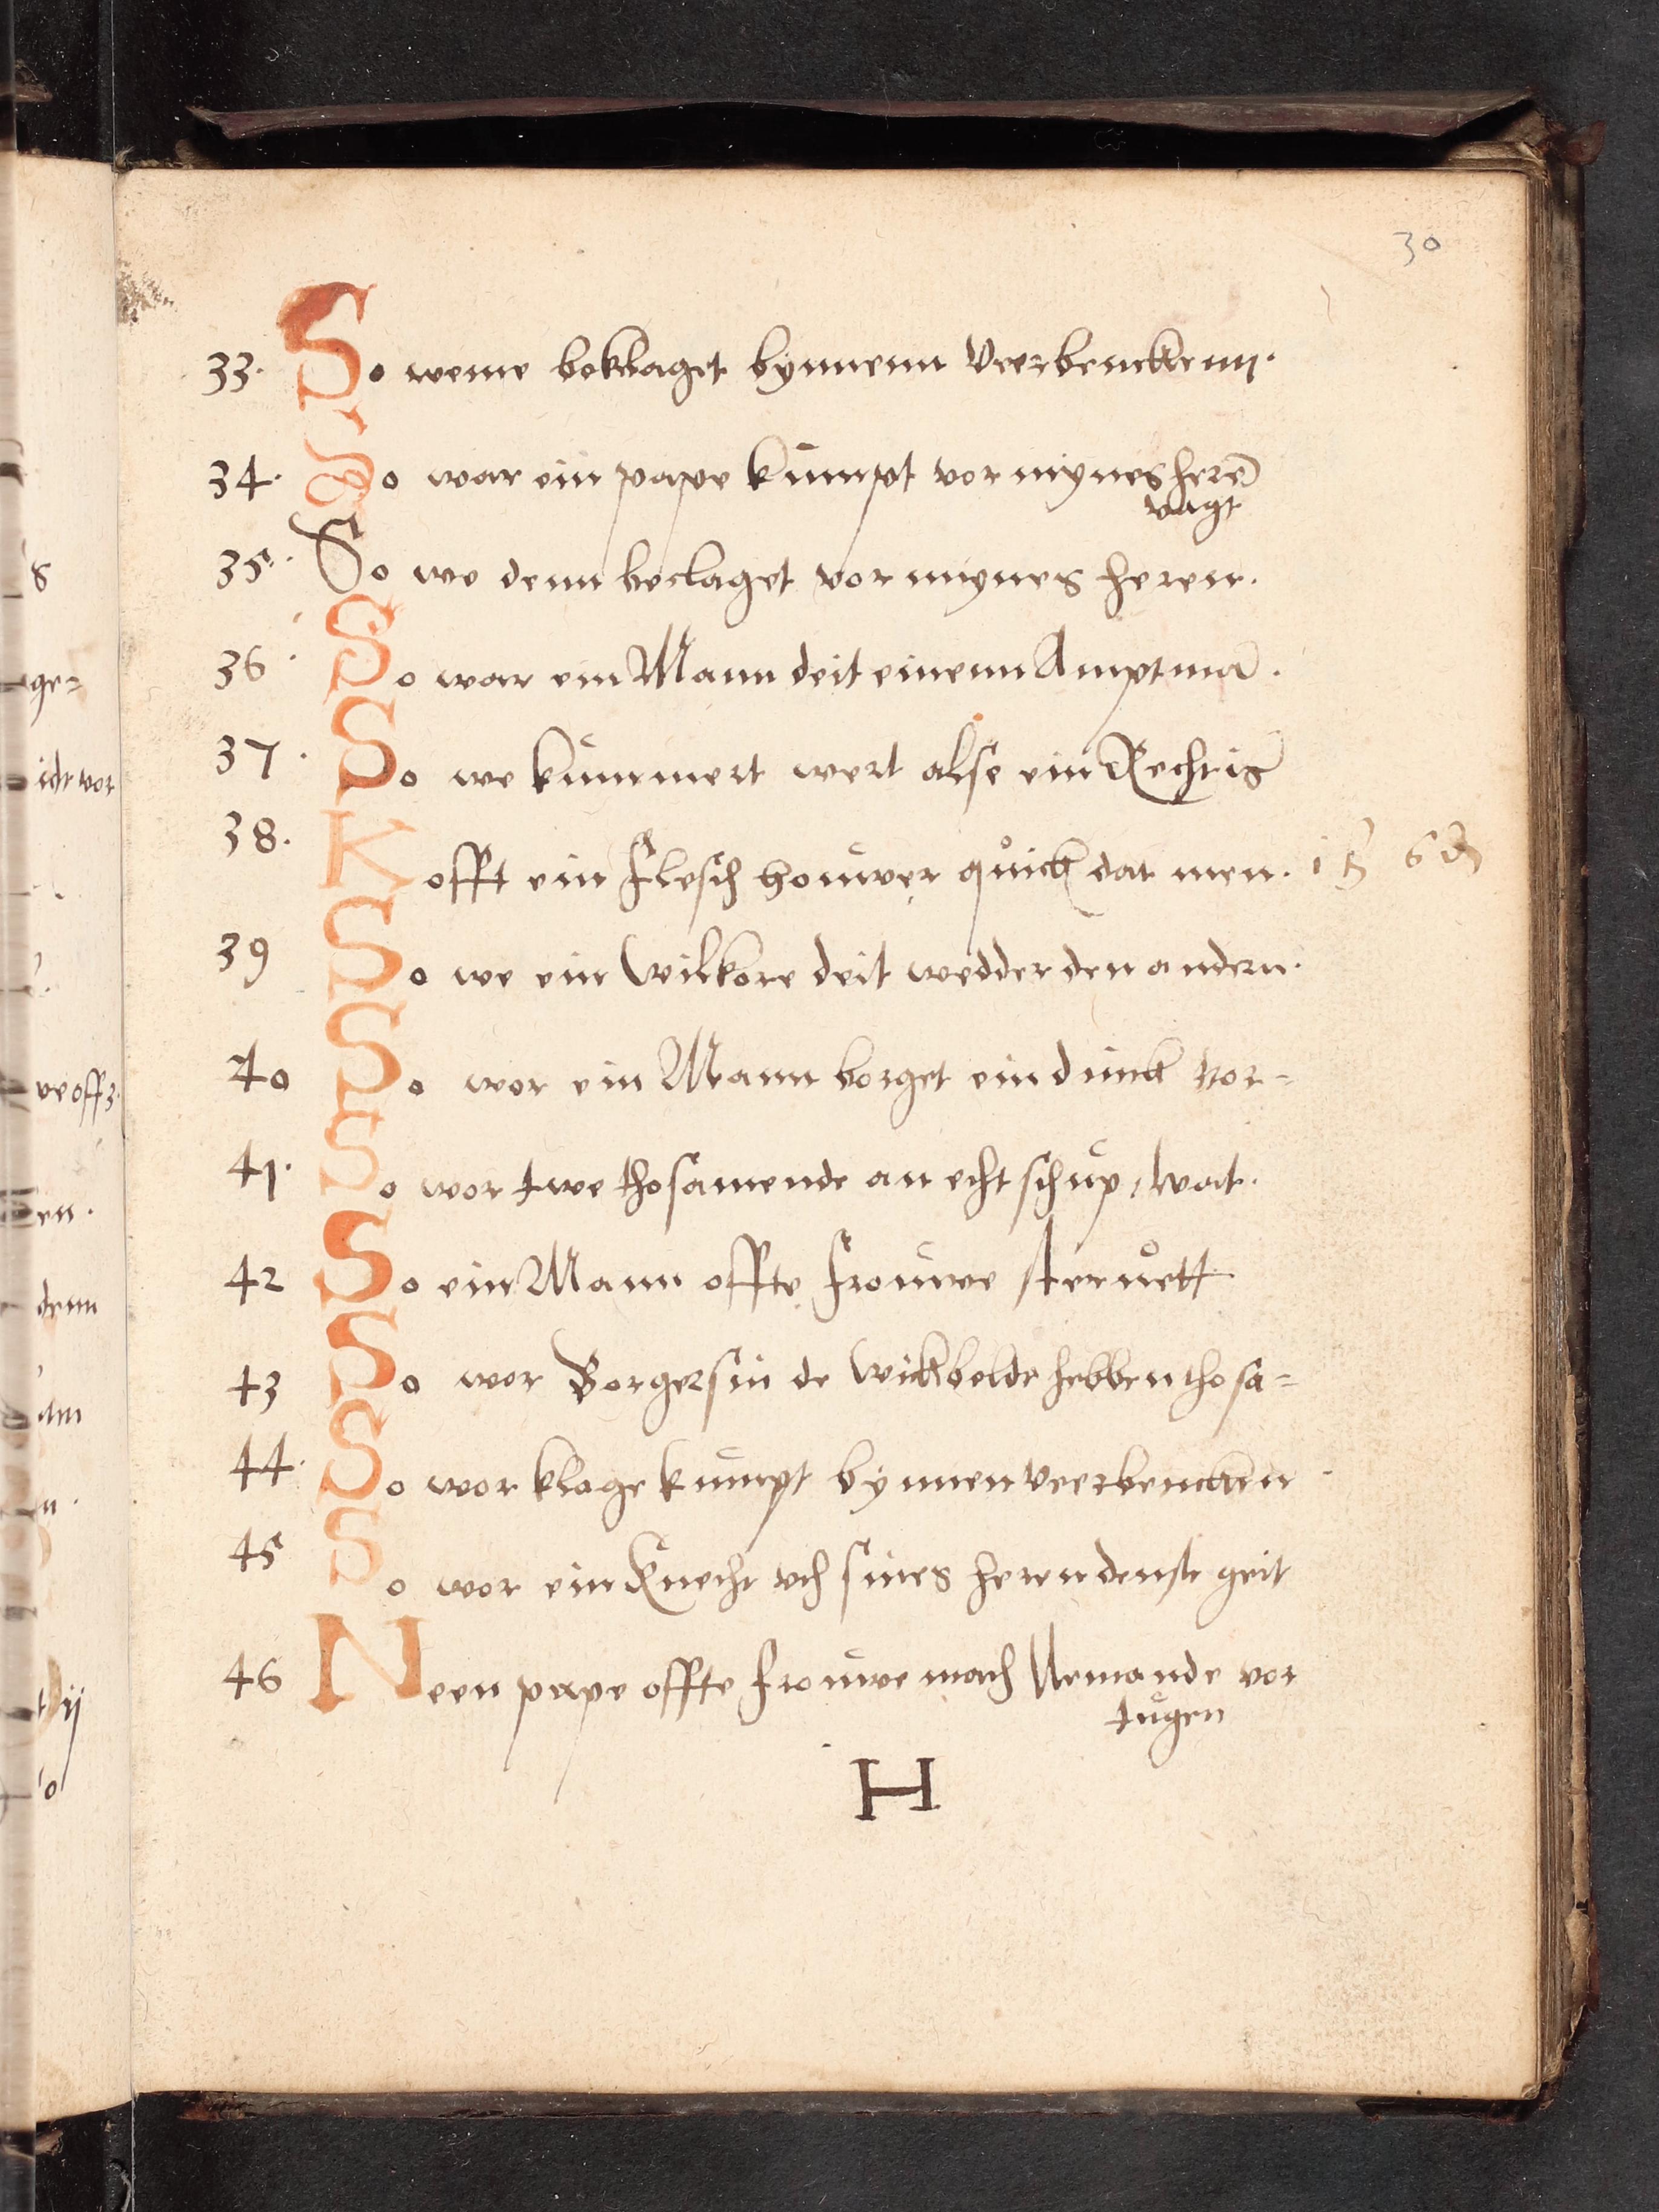 30
33. So weme beklaget bynnenn Veerbenckenn.
34. So war ein pape kumpt vor mynes herē
vagt
35. So we denn beclaget vor mynes heren.
36 So war ein Mann deit einenn Amptmā.
37. So we kummert wert alse ein Recht is
38. Kofft ein Flesch houwer quick dat men.
39 So we ein Wilkore deit wedder den andern.
40 So wor ein Mann borget ein dinck vor=
41. So wor twe thosamende an echtschup, wat.
42 So ein Mann offte Frouwe steruett
43 So wor Borgers in de Wickbelde hebben thosa=
44. So wor klage kumpt bynnen veerbencken
45 So wor ein Knecht vth sines heren denste geit
46 Neen pape offte Frouwe mach Nemande vor
tugen
H